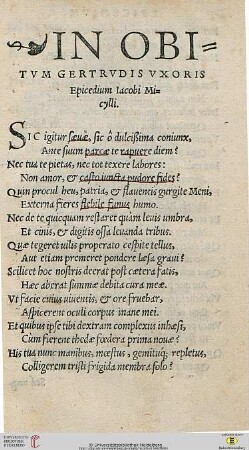 IN OBI=
TVM GERTRVDIS VXORIS
Epicedium Iacobi Mi=
cylli.
SIC igitur sæuæ, sic ô dulcißima coniunx,
Ante suum parcæ te rapuere diem?
Nec tua te pietas, nec tot texere labores:
Non amor, & casto iuncta pudore fides?
Quin procul heu, patria, & flauentis gurgite Meni,
Externa fieres flebile funus humo.
Nec de te quicquam restaret quàm leuis umbra,
Et cinis, & digitis ossa leuanda tribus.
Quæ tegeret uilis properato cespite tellus,
Aut etiam premeret pondere læsa graui?
Scilicet hoc nostris decrat post cætera fatis,
Hæc aberat summæ debita cura meæ.
Vt facie cuius uiuentis, & ore fruebar,
Aspicerent oculi corpus inane mei.
Et quibus ipse tibi dextram complexus inhæsi,
Cum fierent thedæ fœdera prima nouæ?
His tua nunc manibus, mœstus, gemituq; repletus,
Colligerem tristi frigida membra solo?
© Universitätsbibliothek Heidelberg